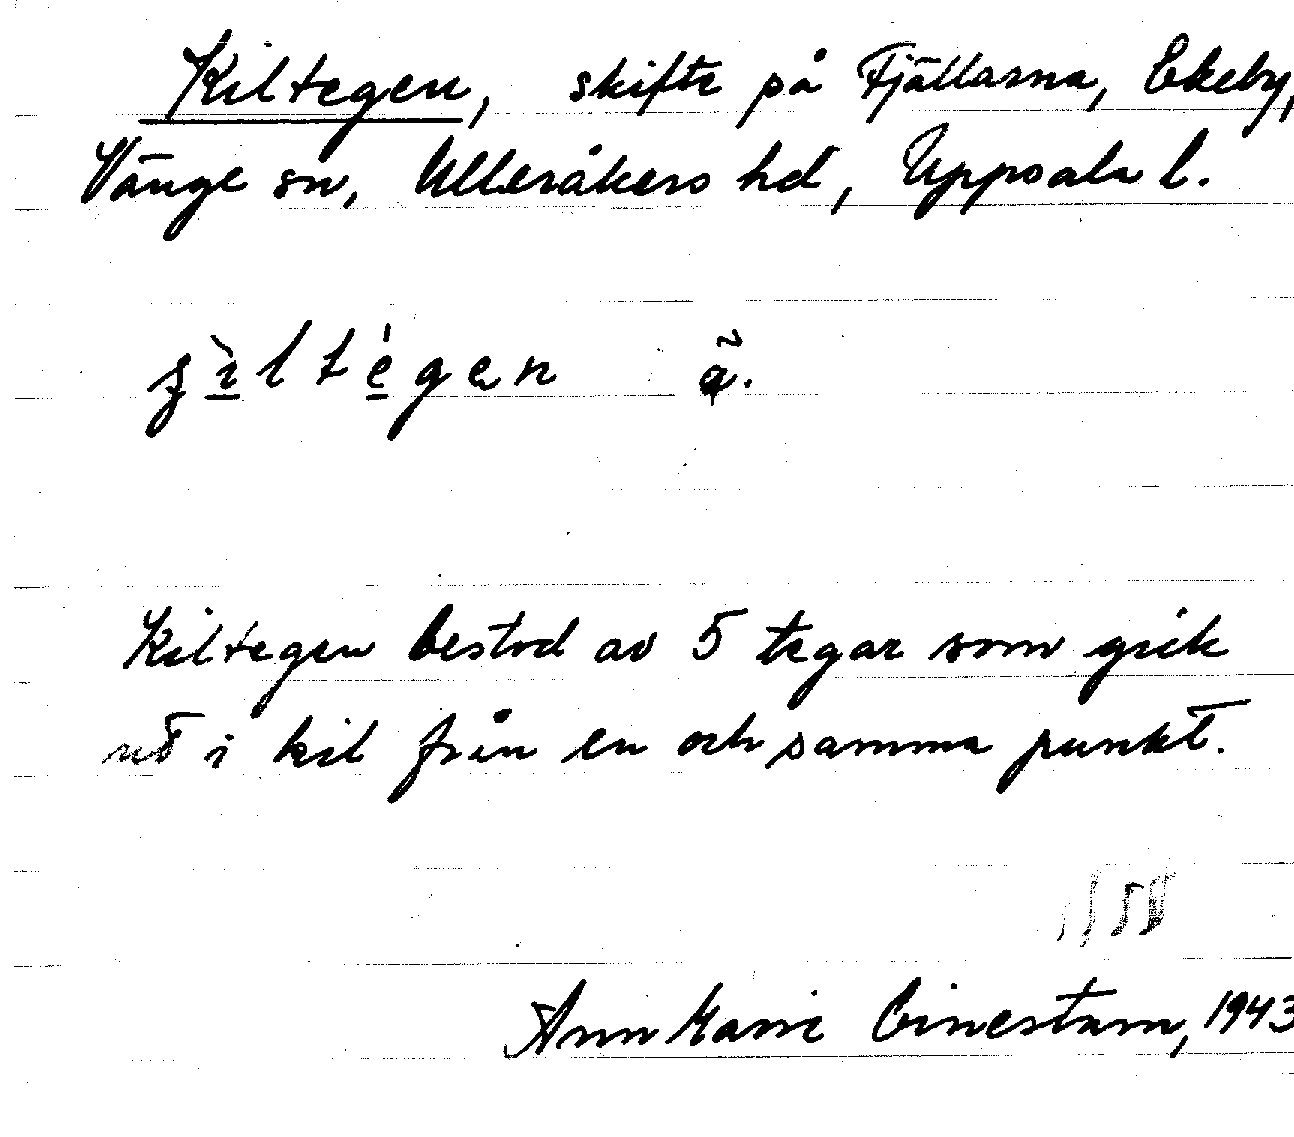 Kiltegen, skifte på Fjällarna, Ekeby,
Vänge sn, Ulleråkers hd, Uppsala l.
ã.
Kiltegen bestod av 5 tegar som gick
ut i kil från en och samma punkt.
Ann Marie 1943